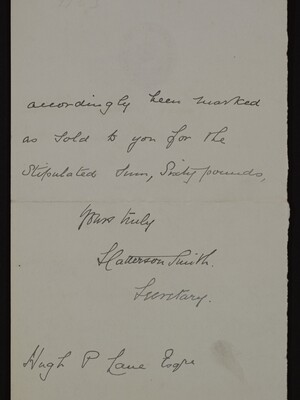 accordingly been marked
as sold to you for the
Stipulated Sum, Sixty pounds,
Yours truly
Smith.
Secretary.
Hugh P Lane Esqre